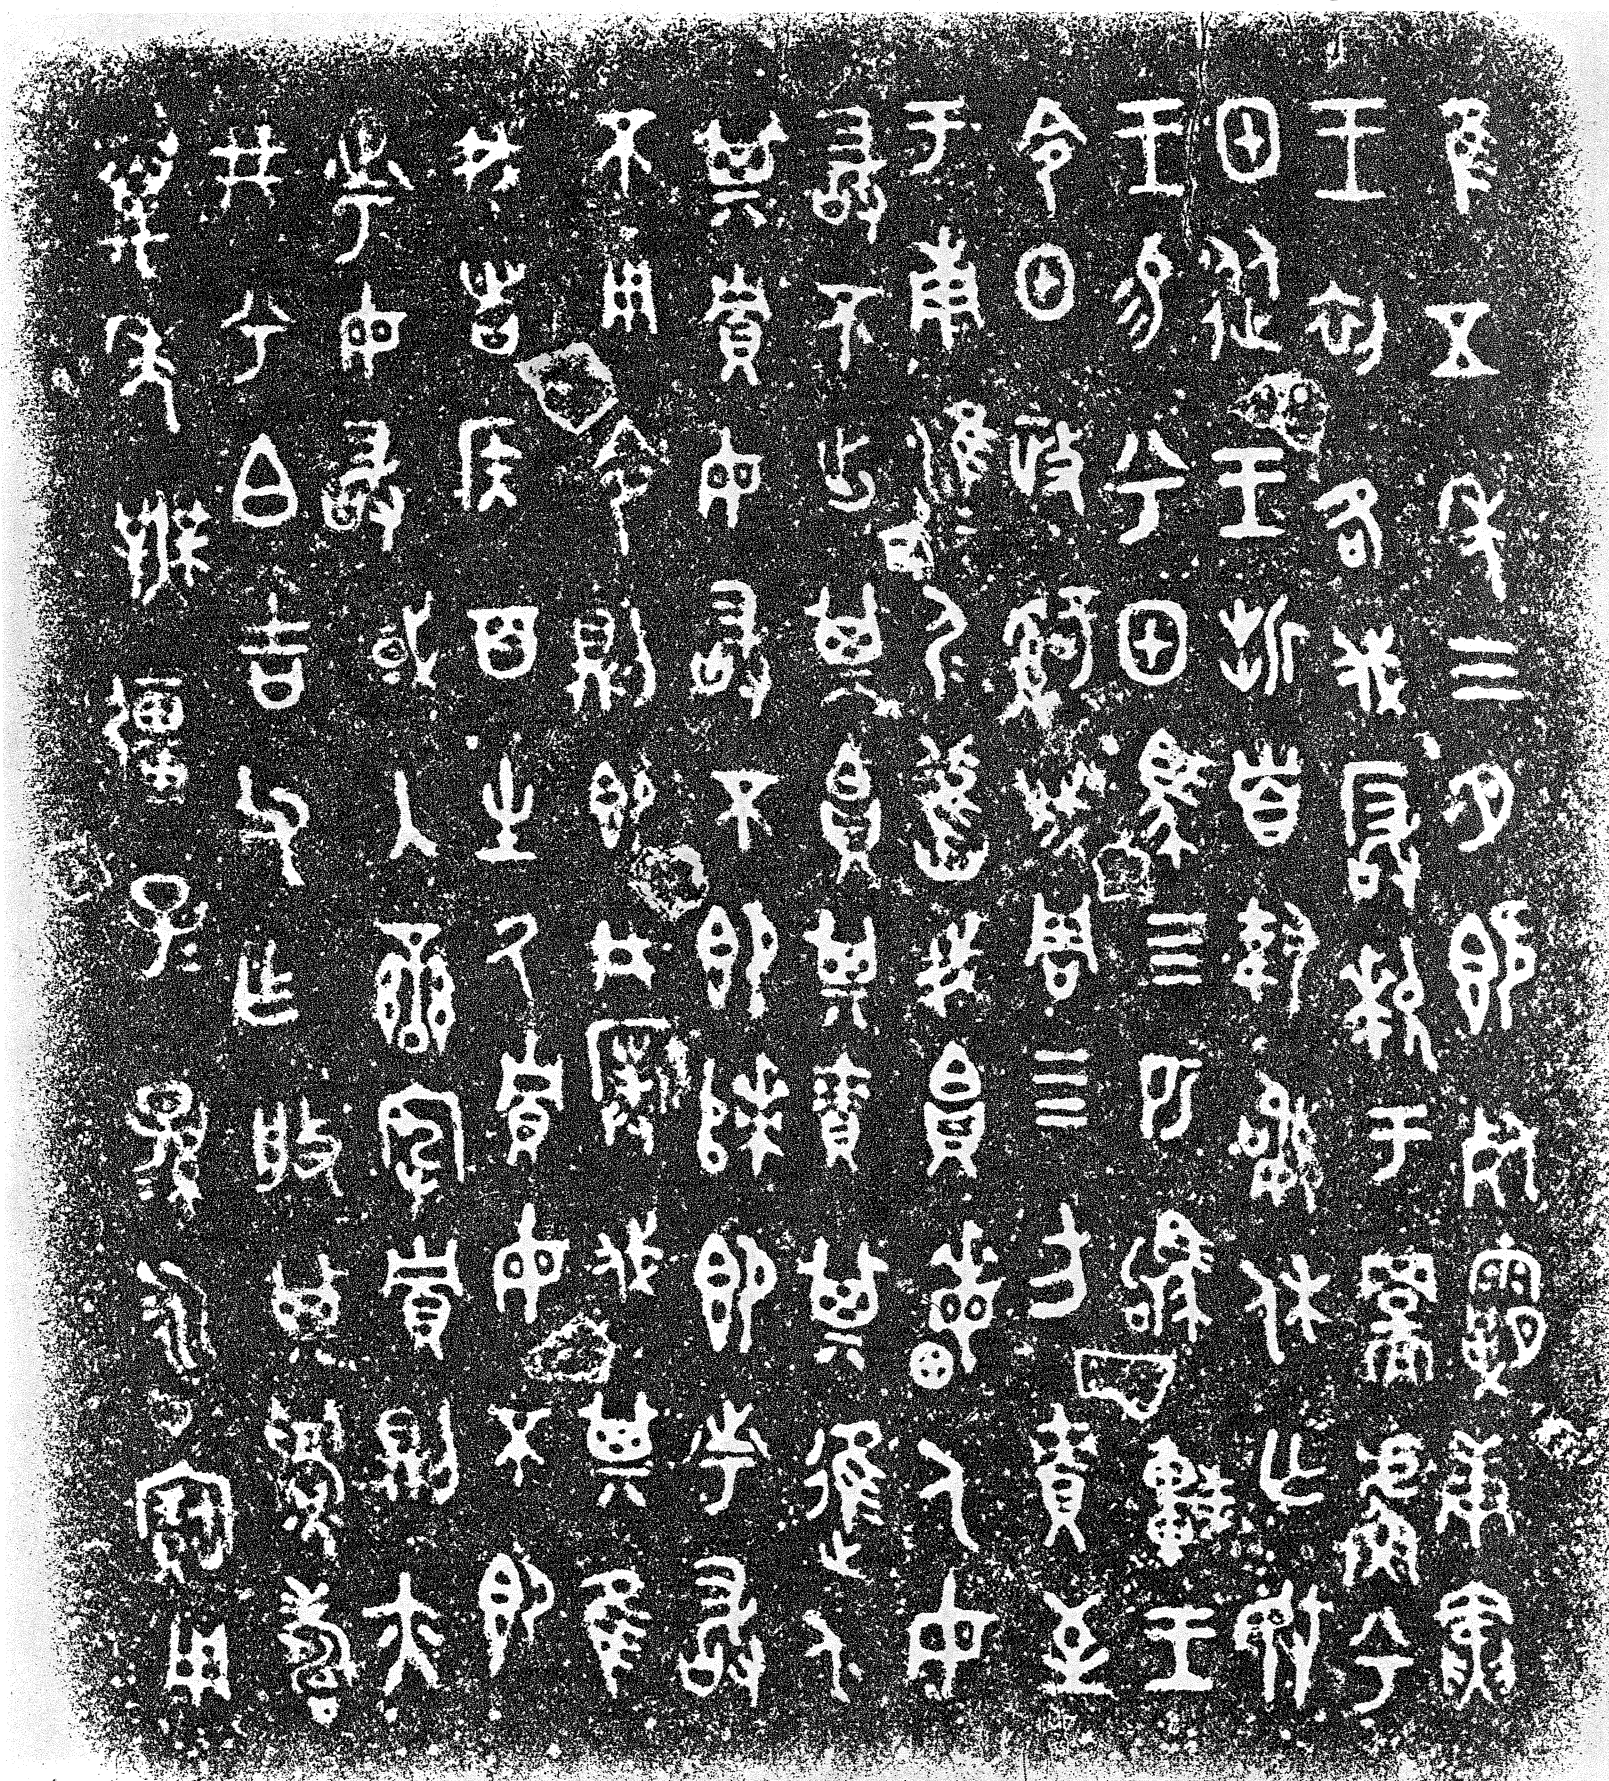 隹五年三月既死霸庚寅
王初各伐玁狁于䣙䖒兮
甲從王折首執訊休亡敃
王易兮甲馬四匹駒車王
令甲政𤔲成周四方責至
于南淮尸＝舊我帛畮人毋
敢不出其帛其責其進人
其貯毋敢不即次即市敢
不用令則即井撲伐其隹
我者侯百生氒貯毋不即
市毋敢或入蠻宄貯則亦
井兮白吉父乍般其眉壽
萬年無疆子＝孫＝永寶用